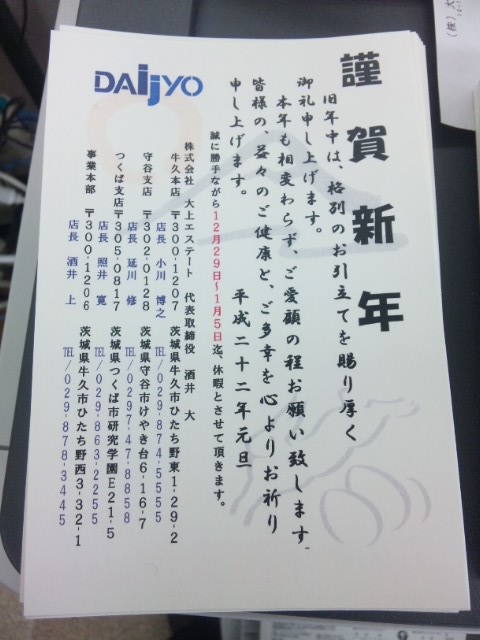 謹賀新年
旧年中は、格別のお引立てを賜り厚く
御礼申し上げます。
本年も相変わらず、ご愛顧の程お願い致します。
皆様の、益々のご健康と、ご多幸を心よりお祈り
申し上げます。
平成二十二年元旦
誠に勝手ながら12月29日~1月5日迄、休暇とさせて頂きます。
株式会社 大上エステート 代表取締役 酒井 大
牛久本店 〒300-1207 茨城県牛久市ひたち野東1-29-2
店長 小川 博之 TEL/029-874-5555
守谷支店 〒302-0128 茨城県守谷市けやき台6-16-7
店長 延川 修 TEL/0297-47-8858
つくば支店 〒305-0817 茨城県つくば市研究学園E21-5
店長 照井 寛 TEL/029-863-2255
事業本部 〒300-1206 茨城県牛久市ひたち野西3-32-1
店長 酒井 上 TEL/029-878-3445
DAijYO
(株)大